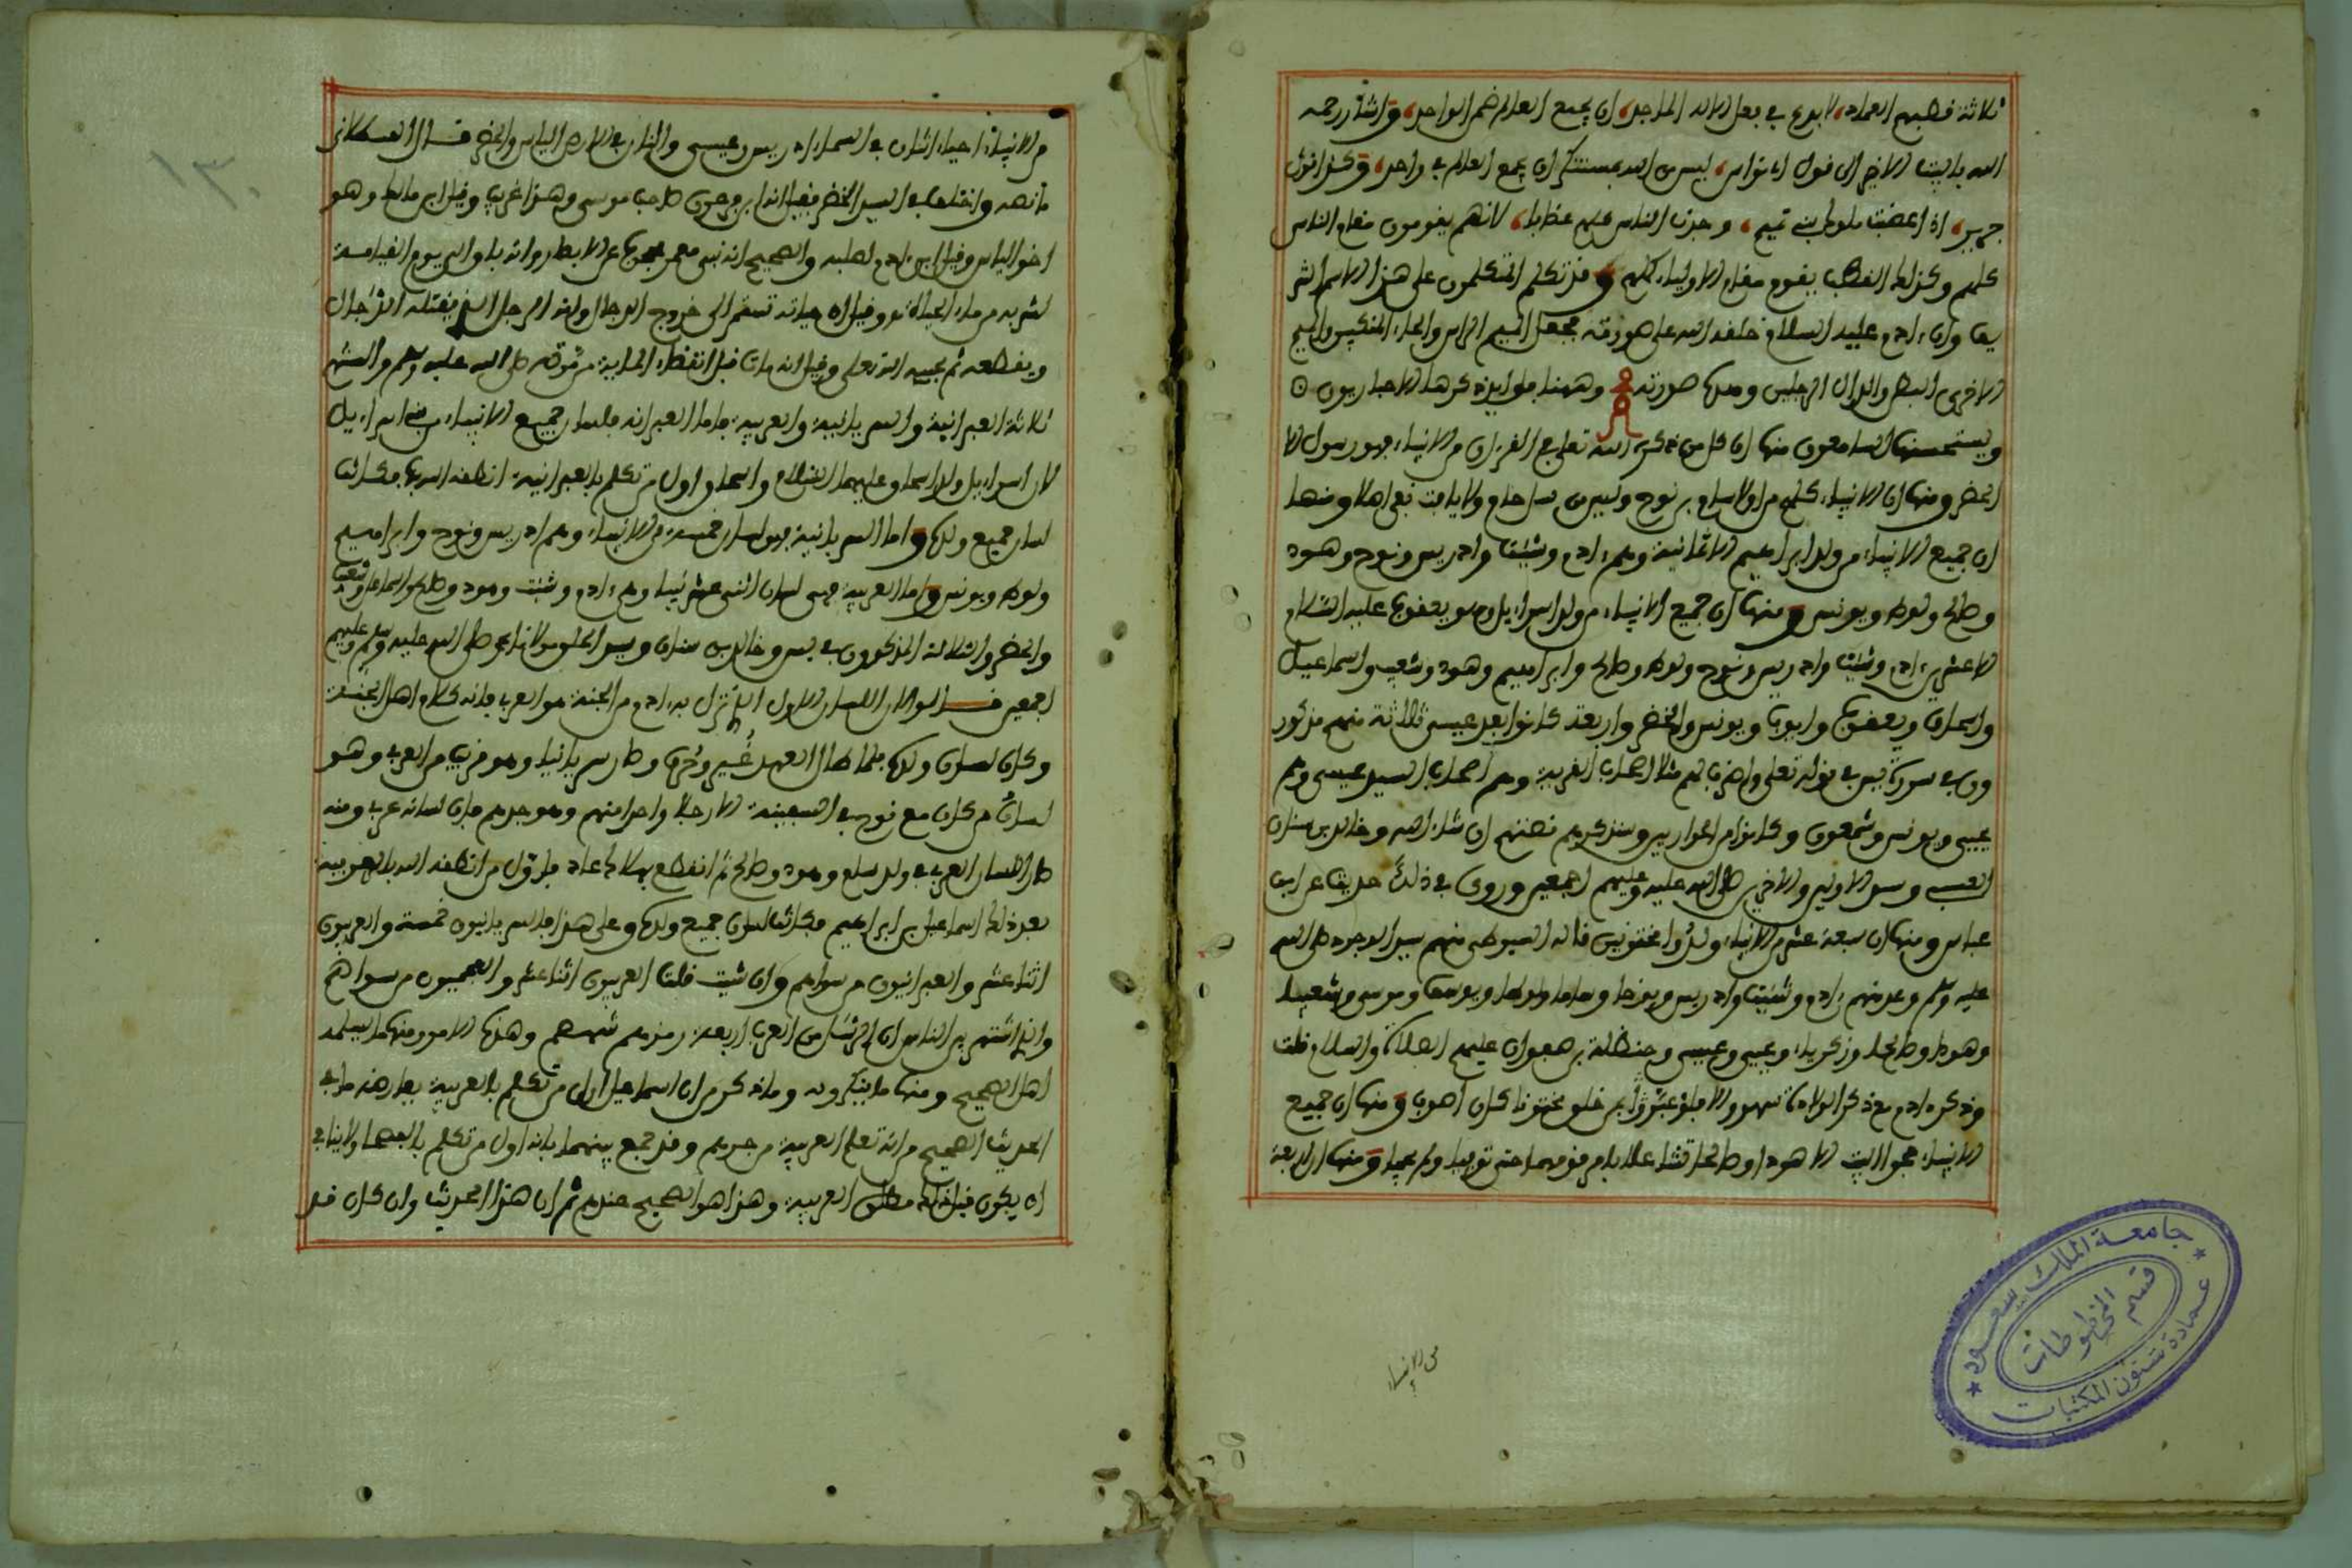 ثلاثة فطبهم العماد، لا بدع في بعل الاله الماجد، ان يجمع العالم ضم الواحد، واشار رحمه
الله بالبيت الاخير الى قول ابي نواس، ليس من الله بمستنكر ان يجمع العالم في واحد، وكذا قول
جرير، اذا غضبت علوك بنو تميم، وجدت الناس كلهم غضابا، لانهم يقومون مقام الناس
كلهم وكذلك القطب يقوم مقام الاولياء كلهم وقد تكلم المتكلمون على هذا الاسم الشر
يف وان ءادم عليه السلام خلقه الله على صورته فجعل الميم الراس والحاء المنكبين والميم
الاخرى البطن والدال الرجلين وهذه صورته وههنا فوايد ذكرها الاخباريون
ويستحسنها السامعون منها ان كل من ذكره الله تعلى في القرءان من الانبياء فهو رسول الا
الخضر ومنها ان الانبياء كلهم من اولاد سام بن نوح وليس من حام ولا يافث نبي اصلا ومنها
ان جميع الانبياء من ولد ابراهيم الا ثمانية وهم ءادم وشيث وادريس ونوح وهود
وصالح ولوط ويونس ومنها ان جميع الانبياء من ولد اسراءيل وهو يعقوب عليه السلام
الا عشرين ءادم وشيث وادريس ونوح ولوط وصالح وابراهيم وهود وشعيب واسماعيل
واسحاق ويعقوب وايوب ويونس والخضر واربعة كانوا بعد عيسى ثلاثة منهم مذكور
ون في سورة يس في قوله تعلى واضرب لهم مثلا اصحاب القرية وهم اصحاب السيد عيسى وهم
يحيى ويونس وشمعون وكانوا من الحواريين وسنذكرهم قصتهم ان شاء الله وخالد بن سنان
العبسي وسيد الاولين والاخرين صلى الله عليه وعليهم اجمعين وروى في ذلك حديثا عن ابن
عباس ومنها ان سبعة عشر من الانبياء ولدوا مختونين قاله السيوطي منهم سيد الوجود صلى الله
عليه وسلم وعد منهم ءادم وشيث وادريس ونوحا وساما ولوطا ويوسف وموسى وشعيبا
وهودا وصالحا وزكرياء ويحيى وعيسى وحنظلة بن صفوان عليهم الصلاة والسلام قلت
وذكره ءادم مع ذكر الولادة سهو والا فلو عبر بمن خلق مختونا كان اصوب ومنها ان جميع
الانبياء حجوا البيت الا هودا وصالحا تشاغلا بامر قومهما حتى توفيا ولم يحجا ومنها ان اربعة
من الانبياء
١٣٠
من الانبياء احياء اثنان في السماء ادريس وعيسى واثنان في الارض الياس والخضر قال القسطلاني
ما نصه واختلف في السيد الخضر فقيل انه ابن فرعون صاحب موسى وهذا غريب وقيل ابن مالك وهو
اخو الياس وقيل ابن ءادم لصلبه والصحيح انه نبي معمر محجوب عن الابصار وانه باق الى يوم القيامة
لشربه من ماء الحياة وقيل ان حياته تستمر الى خروج الدجال وانه الرجل الذي يقتله الدجال
ويقطعه ثم يحييه الله تعلى وقيل انه مات قبل انقضاء الماية من موته صلى الله عليه وسلم والسنتهم
ثلاثة العبرانية والسريانية والعربية فاما العبرانية فلسان جميع الانبياء من بني اسراءيل
لان اسراءيل ولد اسحاق عليهما السلام واسحاق اول من تكلم بالعبرانية انطقه الله بها فكانت
لسان جميع ولده واما السريانية فهي لسان خمسة من الانبياء وهم ادريس ونوح وابراهيم
ولوط ويونس واما العربية فهي لسان اثني عشر نبيا وهم ءادم وشيث وهود وصالح واسماعيل وشعيب
والخضر والثلاثة المذكورون في يس وخالد بن سنان وسيد الخلق مولانا محمد صلى الله عليه وسلم وعليهم
اجمعين قالوا كان اللسان الاول الذي نزل به ءادم من الجنة هو العربي فانه كلام اهل الجنة
وكان لسان ولده فلما طال العهد غير وحرف وصار سريانيا وهو قريب من العربي وهو
لسان من كان مع نوح في السفينة الا رجلا واحدا منهم وهو جرهم فان لسانه عربي ومنه
صار اللسان العربي في ولد سام وهود وصالح ثم انقطع بهلاك عاد فاول من انطقه الله بالعربية
بعد ذلك اسماعيل بن ابراهيم فكانت لسان جميع ولده وعلى هذا فالسريانيون خمسة والعربيون
اثنا عشر والعبرانيون من سواهم وان شيت قلت العربيون اثنا عشر والعجميون من سواهم
والذي اشتهر بين الناس ان الرسل من العرب اربعة رمزهم شهصم وهذه الامور منها ما يسلمه
اهل الصحيح ومنها ما ينكرونه وما ذكر من ان اسماعيل اول من تكلم بالعربية يعارضه ما في
الحديث الصحيح من انه تعلم العربية من جرهم وقد جمع بينهما بانه اول من تكلم بالفصحا ولا ينافي
ان يكون قبل ذلك مطلق العربية وهذا هو الصحيح عندهم ثم ان هذا الحديث وان كان قد
جامعة الملك سعود
قسم المخطوطات
عمادة شئون المكتبات